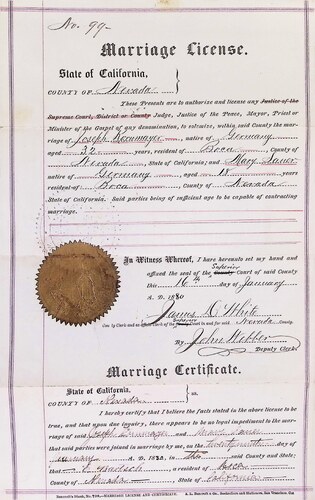 No. 99-
Marriage License.
State of California,
COUNTY OF Nevada
These Presents are to authorize and license any Justice of the
Supreme Court, District or County Judge, Justice of the Peace, Mayor, Priest or
Minister of the Gospel of any denomination, to solemnize, within said County the mar-
riage of Joseph, native of Germany
aged 32 years, resident of Boca, County of
Nevada, State of California; and Mary
native of Germany, aged 18 years
resident of Boca, County of Nevada
State of California. Said parties being of sufficient age to be capable of contracting
marriage.
In Witness Whereof, I have hereunto set my hand and
affixed the seal of the Superior County Court of said County
this 16th day of January
A. D. 1880
James D. White
County Clerk and ex officio Clerk of the Superior County Court in and for said Nevada County.
By John Webber
Deputy Clerk
Marriage Certificate.
State of California,
COUNTY OF Nevada ss.
I hereby certify that I believe the facts stated in the above license to
be true, and that upon due inquiry, there appears to be no legal impediment to the
marriage of said and
that said parties were joined in marriage by me, on the day of
January A. D. 1880, in
that a resident of Boca
County of Nevada State of California